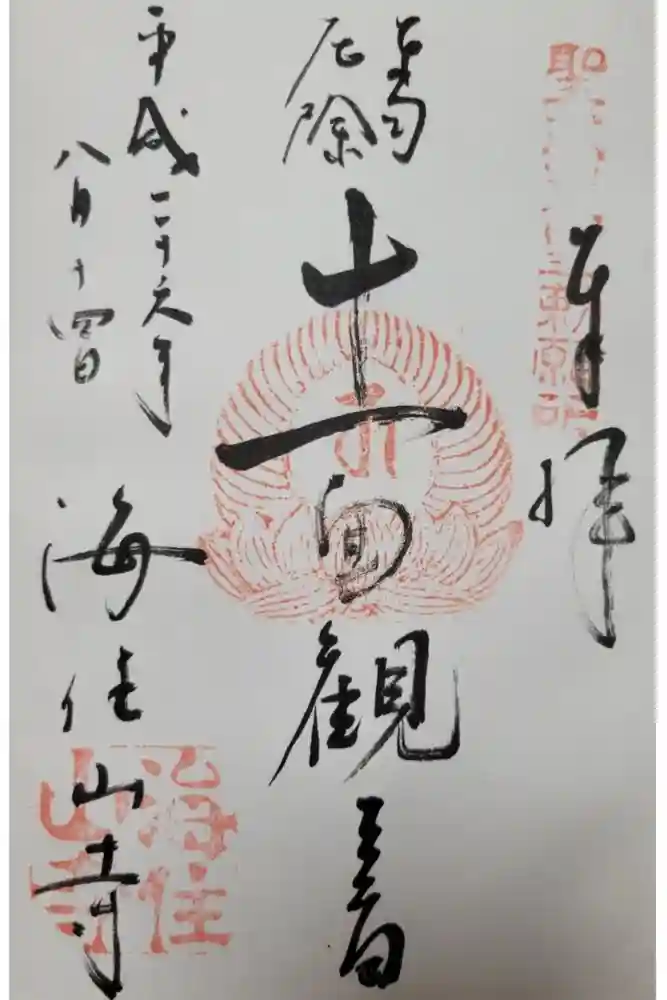 奉拝
厄除
十一面観音
平成二十六年
八月十四日
海住山寺
海住
山寺